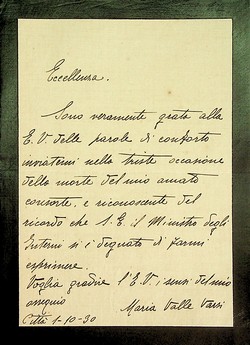 Eccellenza.
Sono veramente grata alla
E. V. delle parole di conforto
inviatemi nella triste occasione
della morte del mio amato
consorte, e riconoscente del
ricordo che S. E. il Ministro degli
Interni si è degnato di farmi
esprimere.
Voglia gradire l'E. V. i sensi del mio
ossequio
Maria Valle Varsi
Città 1-10-30